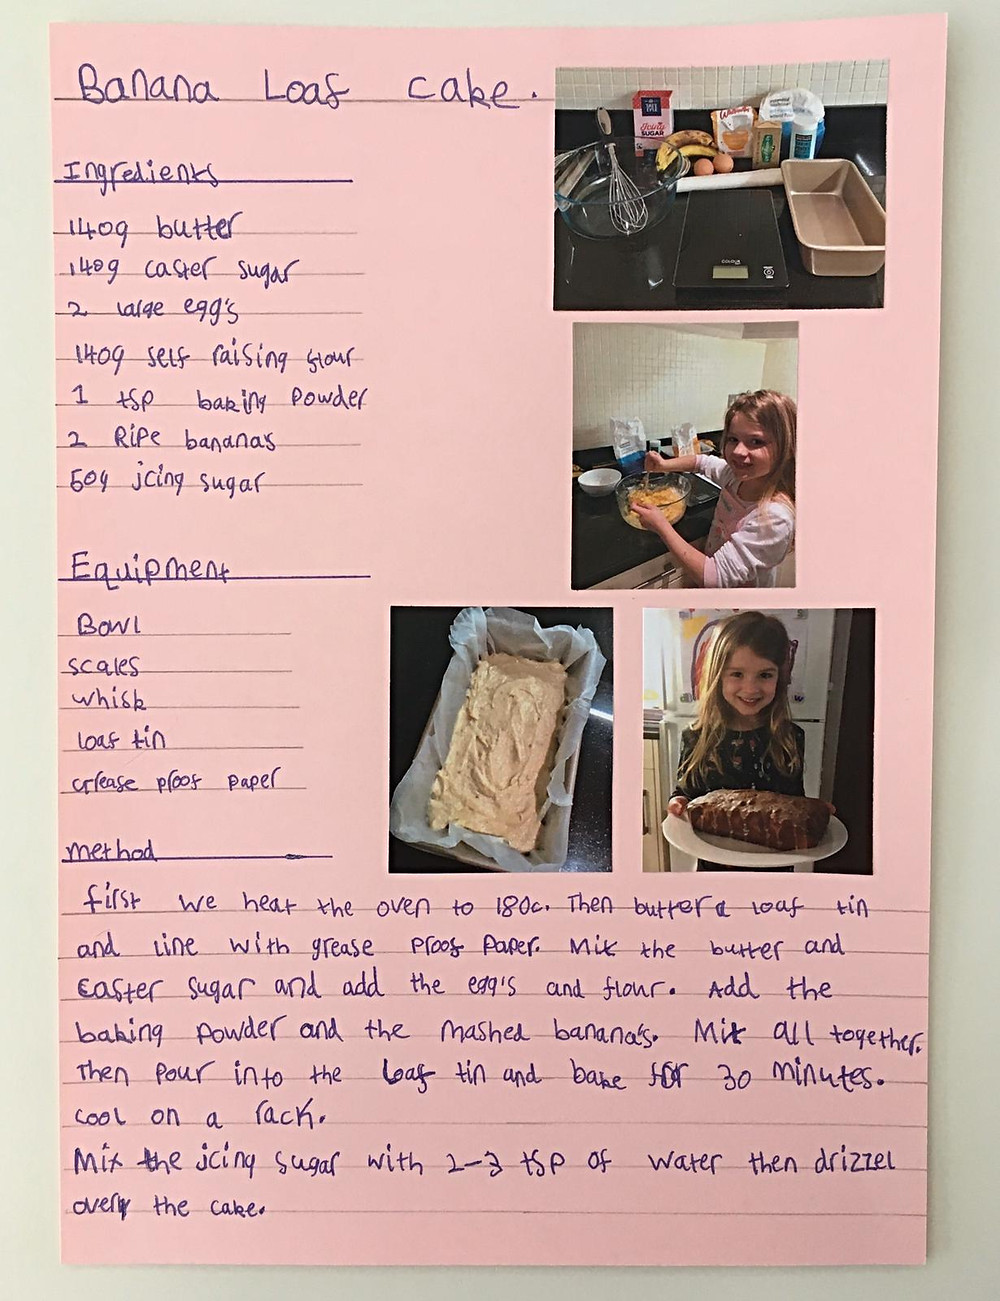 Banana Loaf cake.
Ingredients
140g butter
140g caster sugar
2 large egg's
140g self raising flour
1 tsp baking powder
2 Ripe banana's
50g icing sugar
Equipment
Bowl
scales
whisk
loaf tin
Grease proof paper
method
first we heat the oven to 180c. Then butter a loaf tin
and line with grease proof paper. Mix the butter and
caster sugar and add the egg's and flour. Add the
baking powder and the mashed banana's. Mix all together.
Then pour into the loaf tin and bake for 30 minutes.
cool on a rack.
Mix the icing sugar with 2-3 tsp of water then drizzel
over the cake.
Icing
SUGAR